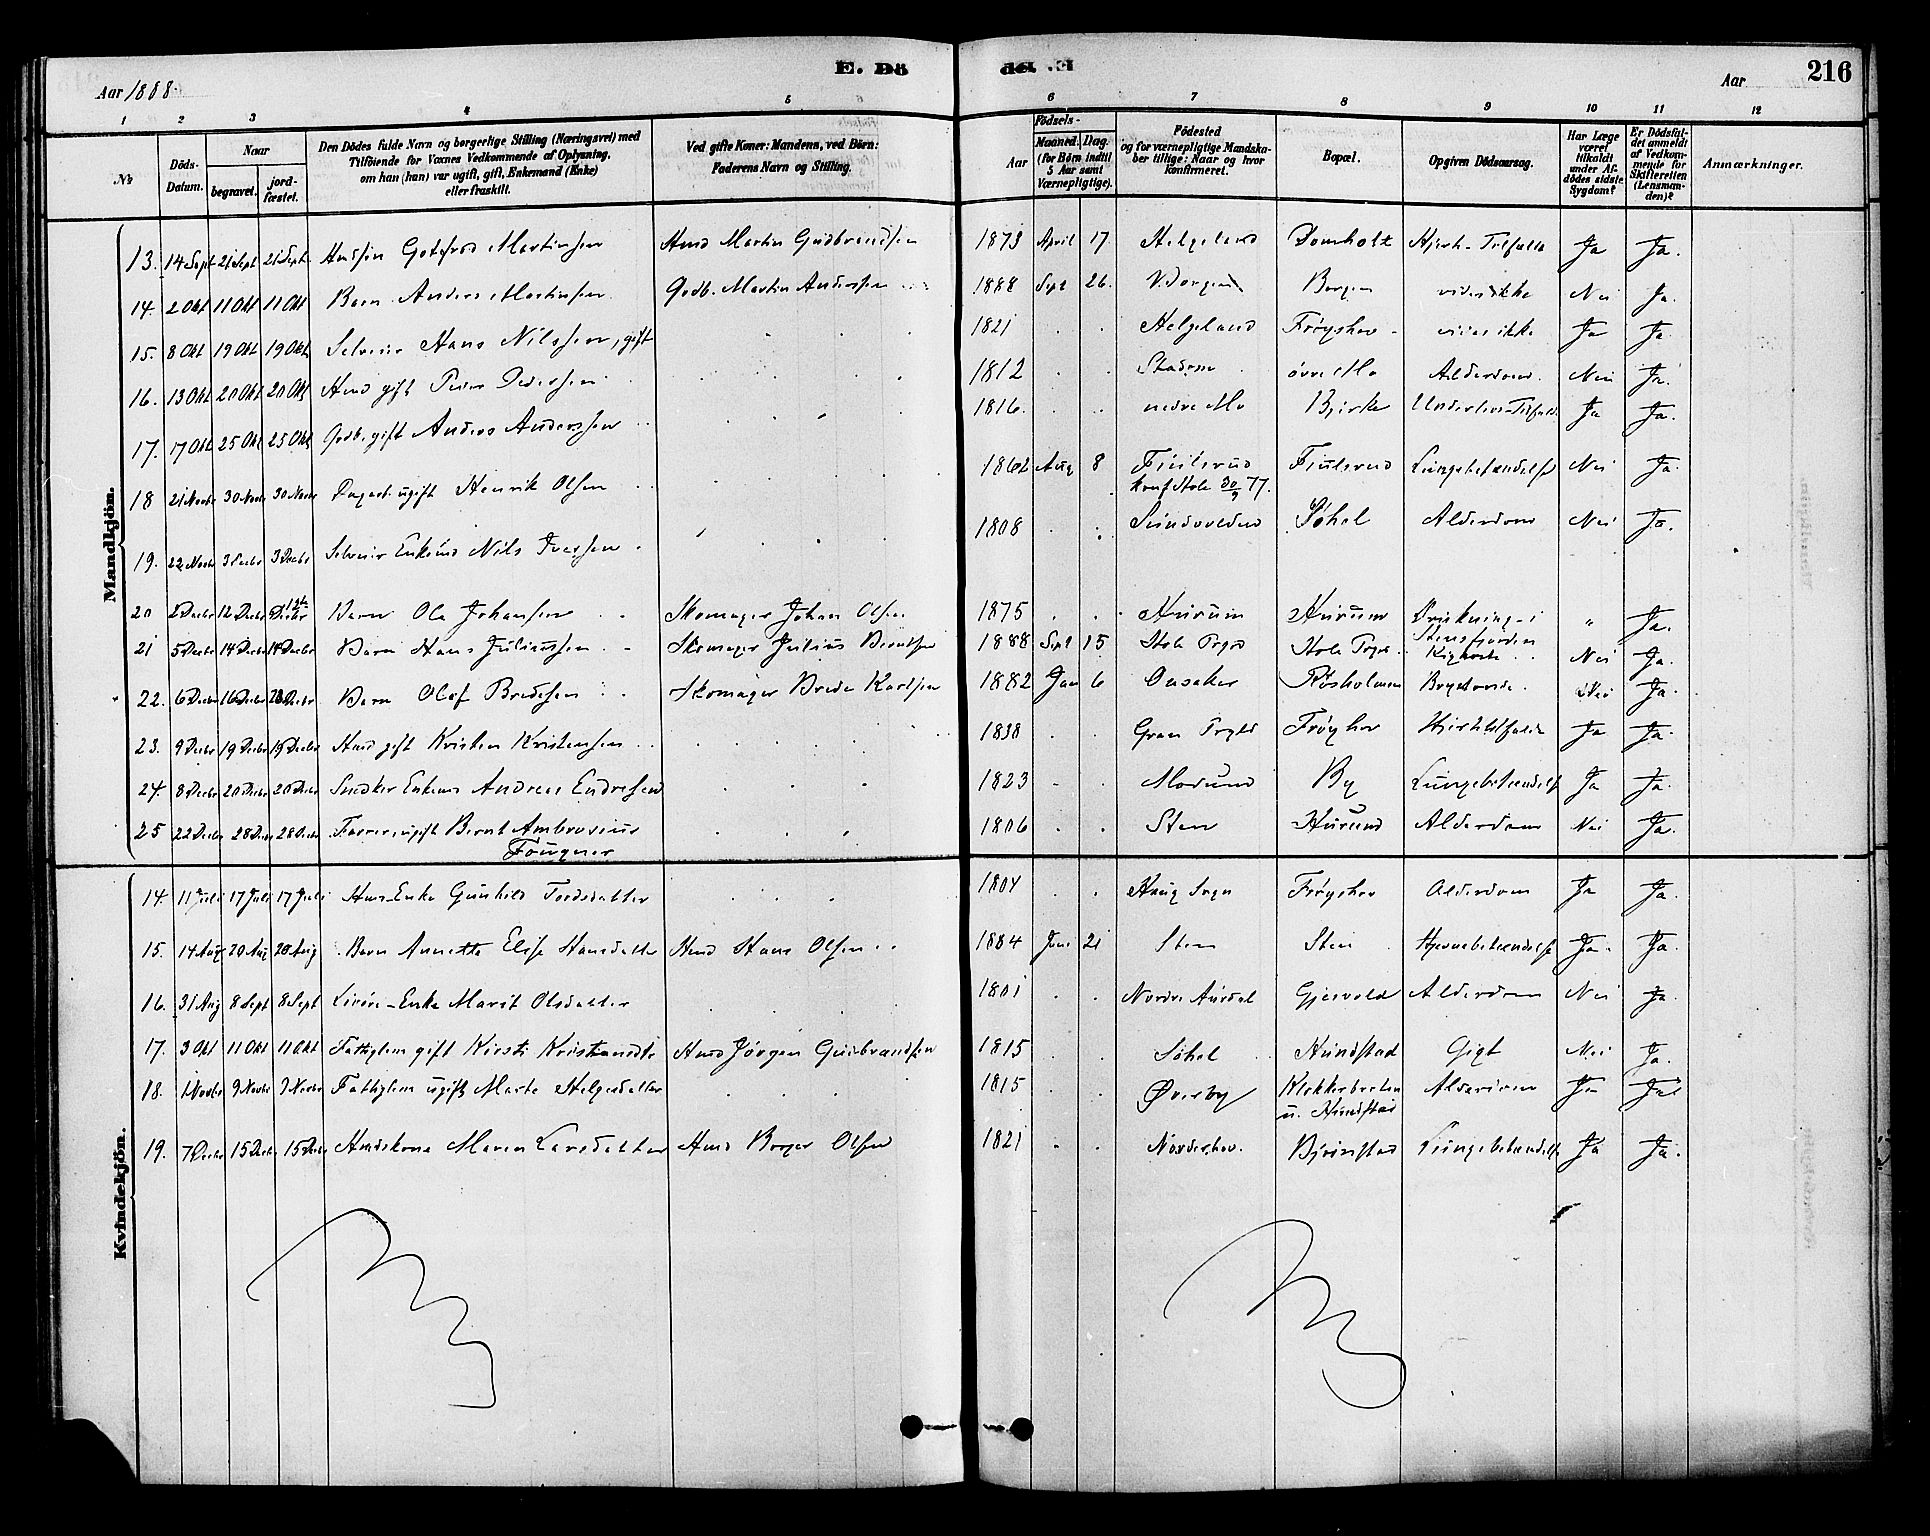 E. Dö
de. .E
216
Aar 1888.
Aar
1 2 3 4 5 6 7 8 9 10 11 12
№
Döds-Datum.
Naar
begravet.
jord-fæstet.
Den Dödes fulde Navn og borgerlige Stilling (Næringsvei) med
Tilföiende for Voxnes Vedkommende af Oplysning,
om han (hun) var ugift, gift, Enkemand (Enke)
eller fraskilt.
Ved gifte Koner: Mandens, ved Börn:
Faderens Navn og Stilling.
Födsels-
Aar
Maaned. Dag.
(for Börn indtil
5 Aar samt
Værnepligtige).
Födested
og for værnepligtige Mandska-
ber tillige: Naar og hvor
konfirmeret.
Bopæl.
Opgiven Dödsaarsag.
Har Læge
været
tilkaldt
under Af-
dödes sidste
Sygdom?
Er Dödsfal-
det anmeldt
af Vedkom-
mende for
Skifteretten
(Lensman-
den)?
Anmærkninger.
Mandkjön.
13. 14 Sept 21 Sept 21 Sept Gotfred Martinsen Martin Gudbrandsen 1873 April 17. Helgeland Domholt Ja Ja.
14. 2 Okt 11 Okt 11 Okt Barn Anders Martinsen Gdb. Martin Anderssen 1888 Sept 26. Borgen vides ikke Nei Ja.
15. 8 Okt 19 Okt 19 Okt Selveier Hans Nilssen, gift 1821 Helgeland Frøyshov vides ikke Ja Ja.
16. 13 Okt 20 Okt 20 Okt Hmd gift Peder Pedersen 1812 øvre Mo Alderdom. Nei Ja.
17. 17 Okt 25 Okt 25 Okt Gdb. gift Anders Anderssen 1816. nedre Mo Bjerke Ja Ja.
18 21 Novbr 30 Novbr 30 Novbr ugift Henrik Olsen 1862 Aug 8 Fiulsrud Fiulsrud Lungebetændelse Nei Ja.
konf Hole 30/9 77.
19. 22 Novbr 3 Decbr 3 Decbr Selveier Enkemd Nils Iversen 1808 Sundvolden Søhol Alderdom Nei Ja.
20 2 Decbr 12 Decbr 12te Decbr Barn Ola Johansen Skomager Johan Olsen 1875 Hurum Hurum Drukning i " Ja.
Stensfjorden
21 5 Decbr 14 Decbr 14 Decbr Barn Hans Juliussen Skomager Julius Berntsen 1888 Sept 15 Hole Prgd Hole Prgd. Kighoste Nei Ja.
22. 6 Decbr 16 Decbr Decbr Barn Olof Bredesen Skomager Brede Karlsen 1882 Jan 6 Onsaker Røsholmen Nei Ja.
23. 9 Decbr 19 Decbr 19 Decbr Hmd gift Kristen Kristensen 1838 Gran Prgld Frøyshov Ja Ja.
24. 8 Decbr 20 Decbr 20 Decbr Snedker Enkemd Andreas Endresen 1823 Modum By Lungebetændelse Ja Ja.
25 22 Decbr 28 Decbr 28 Decbr ugift Bernt Ambrosius 1806 Sten Alderdom Nei Ja.
Fougner
Kvindekjön.
14. 11 Juli 17 Juli 17 Juli Hmd-Enke Gunhild Tordsdatter 1804 Haug Sogn Frøyshov Alderdom Ja Ja.
15. 14 Aug 20 Aug 20 Aug Barn Annette Elise Hansdatter Hmd Hans Olsen 1884 Juni 21 Sten Sten Hjernebetændelse Ja. Ja.
16. 31 Aug 8 Sept 8 Sept Enke Marit Olsdatter 1801 Nordre Aurdal Gjesvold Alderdom Nei Ja.
17. 3 Okt 11 Okt 11 Okt Fattiglem gift Kirsti Hmd Jörgen Gudbrandsen 1815 Søhol Hundstad Gigt Nei Ja.
18. 1 Novbr 9 Novbr 9 Novbr Fattiglem ugift Marte Helgesdatter 1815 Øverby Klokkerbraten Alderdom Ja Ja
u. Hundstad
19. 7 Decbr 15 Decbr 15 Decbr Hmdskone Maren Larsdatter Hmd Borger Olsen 1821 Norderhov. Bjørnstad Lungebetændelse Ja Ja.